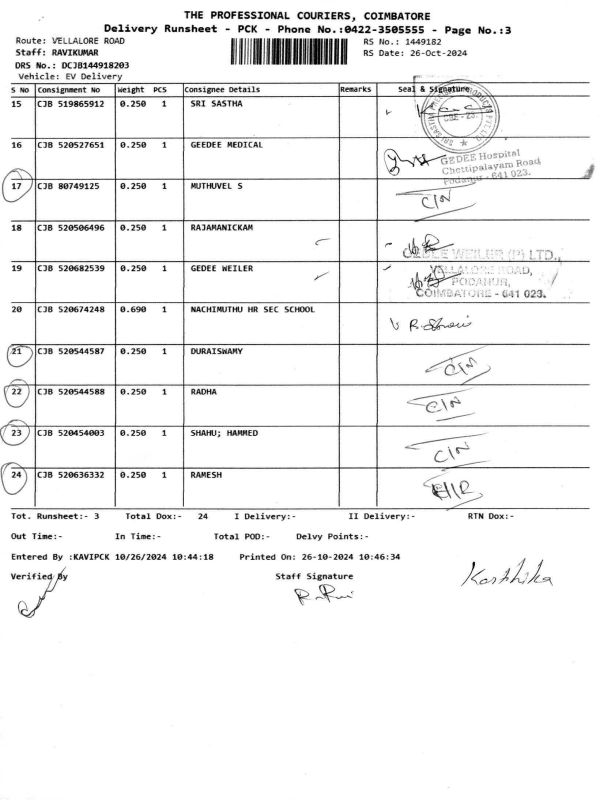 THE PROFESSIONAL COURIERS, COIMBATORE
Delivery Runsheet - PCK - Phone No.:0422-3505555 - Page No.:3
Route: VELLALORE ROAD RS No.: 1449182
Staff: RAVIKUMAR RS Date: 26-Oct-2024
DRS No.: DCJB144918203
Vehicle: EV Delivery
S No Consignment No Weight PCS Consignee Details Remarks Seal & Signature
15 CJB 519865912 0.250 1 SRI SASTHA
16 CJB 520527651 0.250 1 GEEDEE MEDICAL
GEDEE Hospital
Chettipalayam Road
Podanur - 641 023.
17 CJB 80749125 0.250 1 MUTHUVEL S C/N
18 CJB 520506496 0.250 1 RAJAMANICKAM
GEDEE WEILER (P) LTD.,
19 CJB 520682539 0.250 1 GEDEE WEILER
VELLALORE ROAD,
PODANUR,
COIMBATORE - 641 023.
20 CJB 520674248 0.690 1 NACHIMUTHU HR SEC SCHOOL
21 CJB 520544587 0.250 1 DURAISWAMY C/N
22 CJB 520544588 0.250 1 RADHA C/N
23 CJB 520454003 0.250 1 SHAHU; HAMMED C/N
24 CJB 520636332 0.250 1 RAMESH
Tot. Runsheet:- 3 Total Dox:- 24 I Delivery:- II Delivery:- RTN Dox:-
Out Time:- In Time:- Total POD:- Delvy Points:-
Entered By :KAVIPCK 10/26/2024 10:44:18 Printed On: 26-10-2024 10:46:34
Verified By Staff Signature Karthika